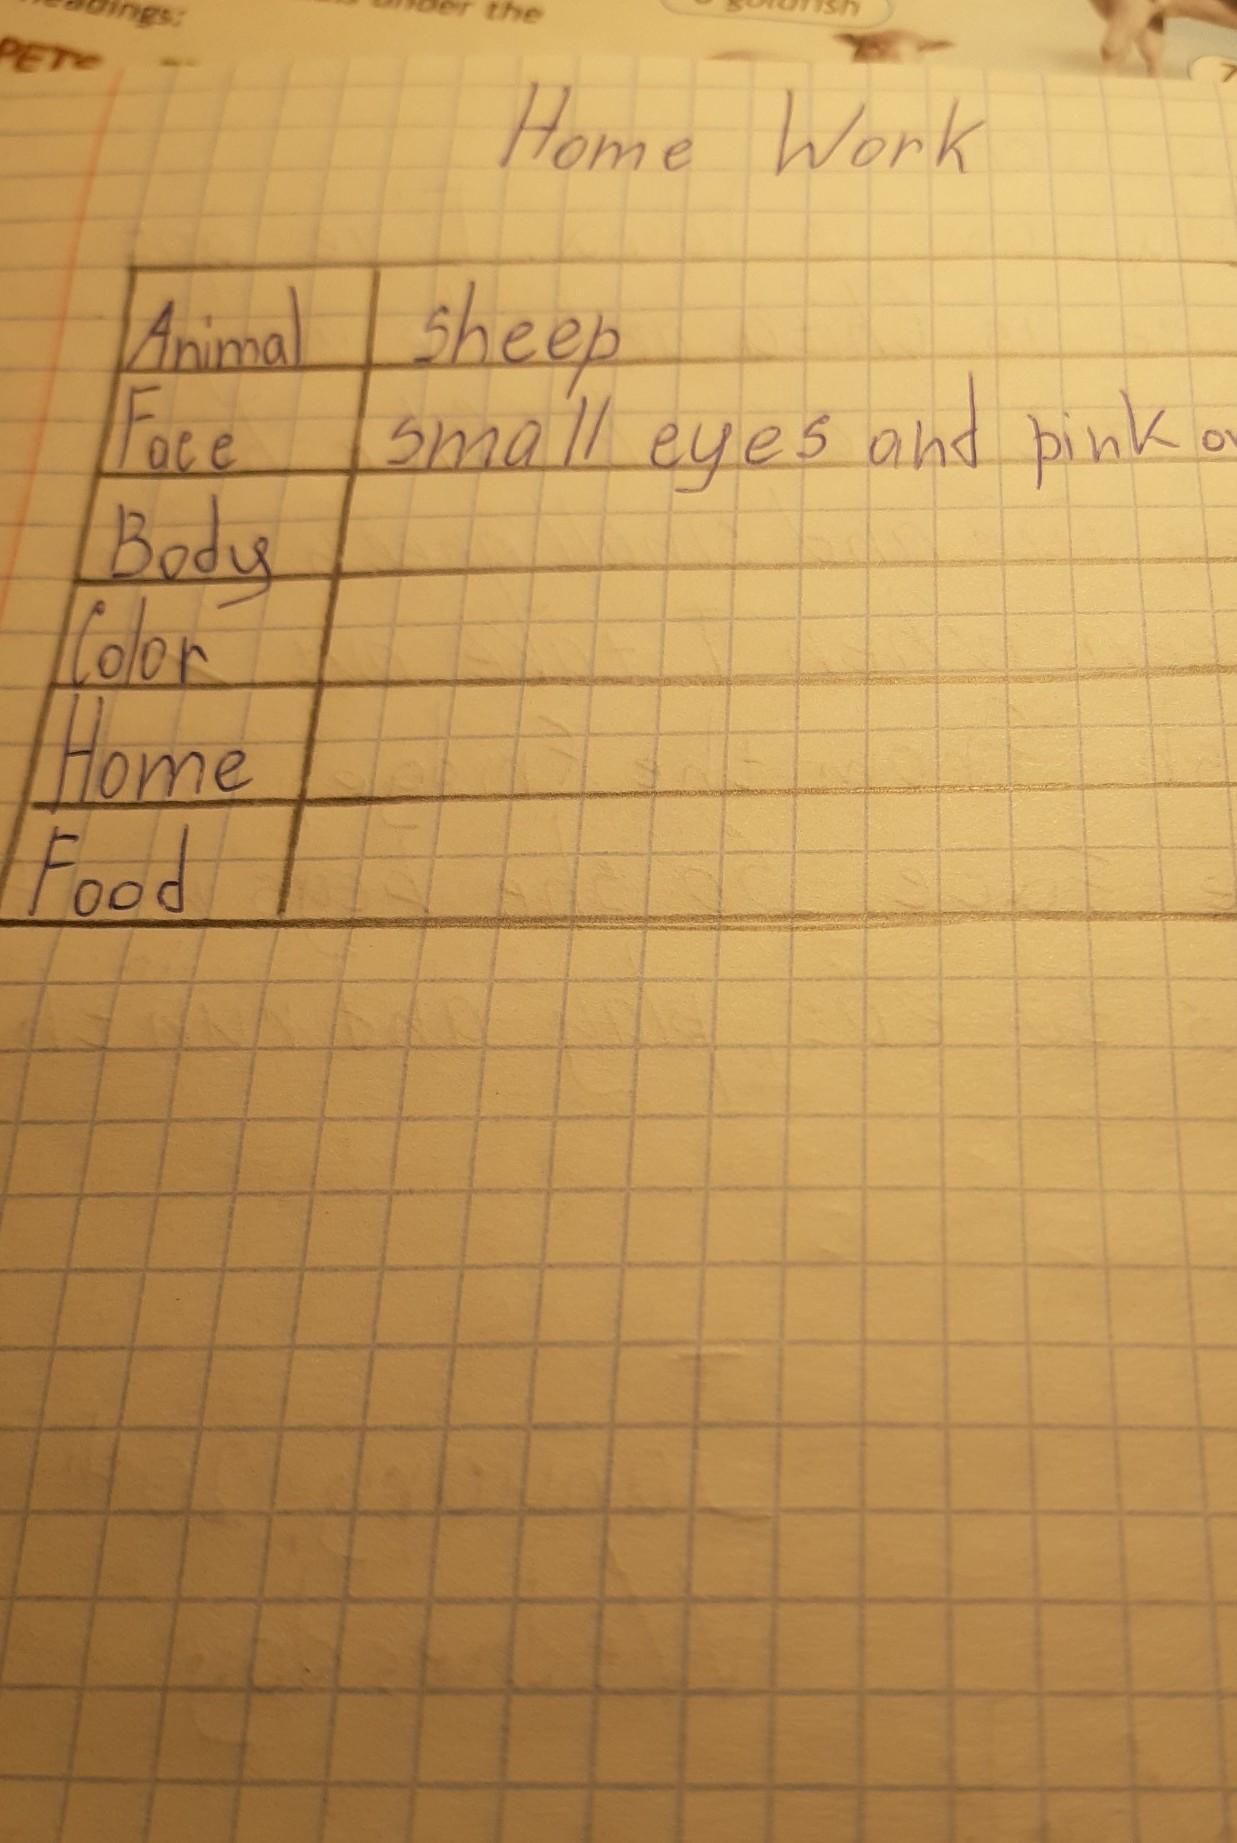 under the
goldfish
PETS
Home Work
Animal sheep
Face small eyes and pink
Body
Color
Home
Food